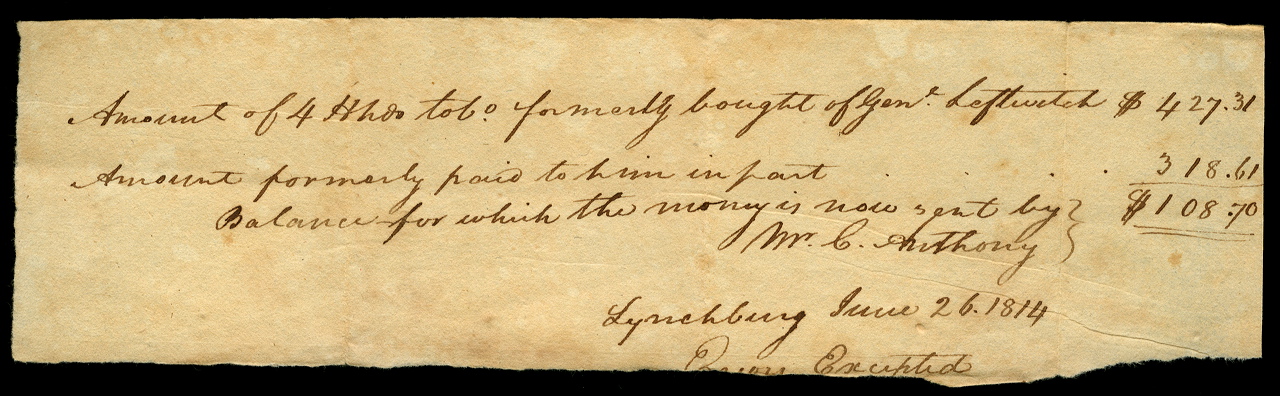 Amount of 4 Hhds tobo. formerly bought of Genl. Leftwitch $ 427.31
Amount formerly paid to him in part . . . . 318.61
Balance for which the money is now sent by } $108.70
Mr. C. Anthony
Lynchburg June 26. 1814
Errors Excepted